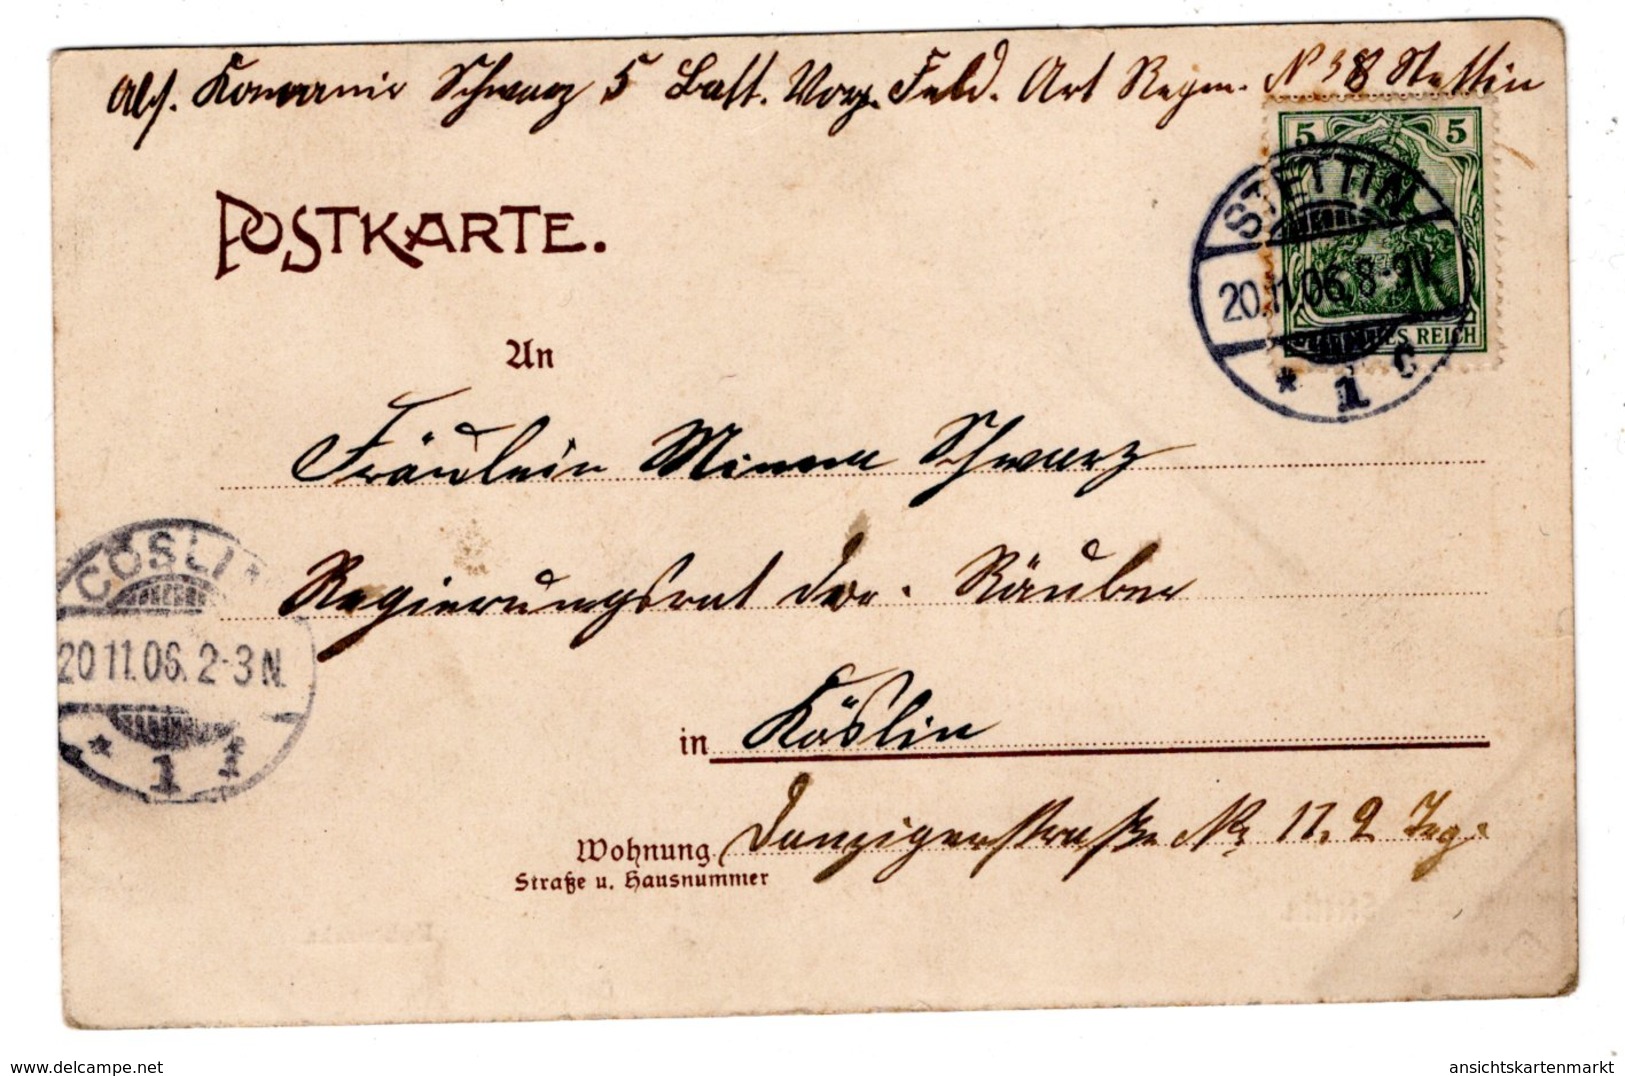 Abs. Kanonier Schwarz 5 Batt. Vorp. Feld. Art Regm. N 38 Stettin
5 5
STETTIN
20.11.06. 8-9V.
DEUTSCHES REICH
* 1 c
POSTKARTE.
An
Fräulein Minna Schwarz
Regierungsrat Räuber
CÖSLIN
20.11.06. 2-3N.
* 1 f
in Köslin
Wohnung Danzigerstraße No 17, 2 Trg.
Straße u. Hausnummer
delcampe.net
ansichtskartenmarkt